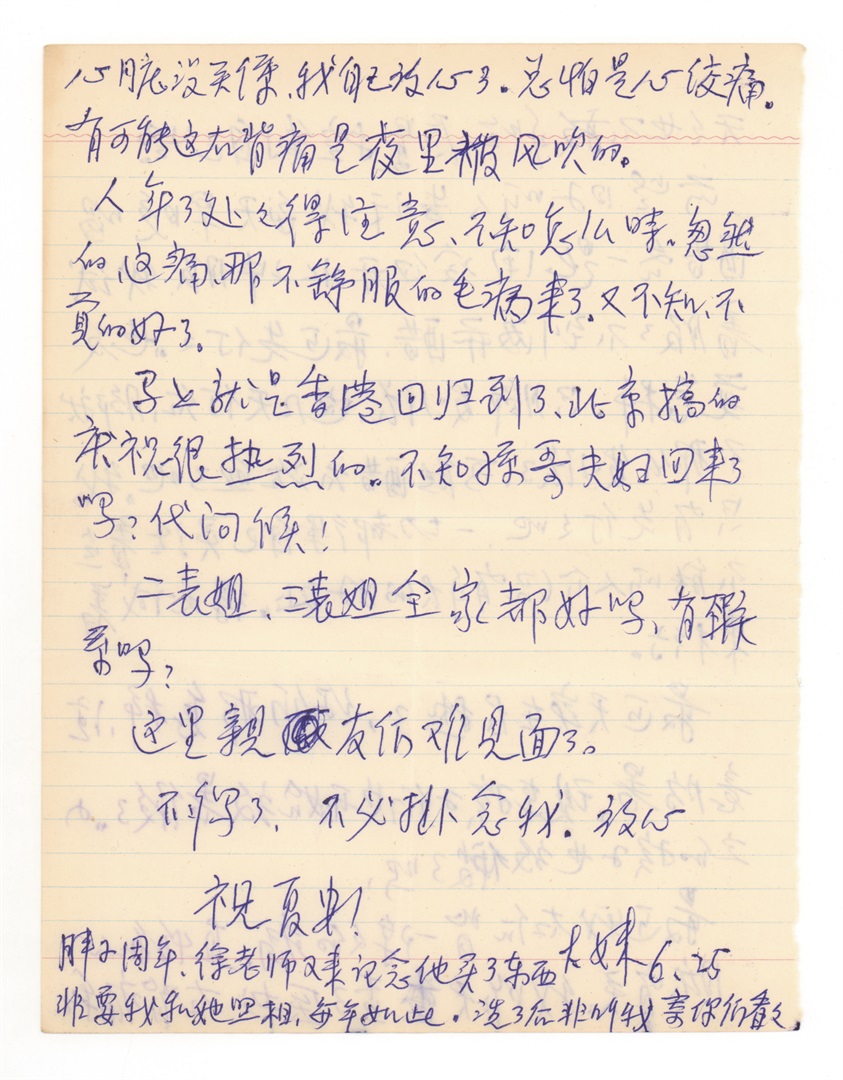 心脏没关系、我自己放心了。总怕是心绞痛。
有可能这右背痛是夜里被风吹的。
人年了处处得注意、不知怎么时。忽然
的这痛、那不舒服的毛病来了、又不知、不
觉的好了。
马上就是香港回归到了、北京搞的
庆祝很热烈的。不知 哥夫妇回来了
吗？代问候！
二表姐、三表姐全家都好吗、有联
系吗？
这里亲友们难见面了。
不写了、不必挂念我。放心
祝夏安！
大妹 6、25
胖子周年、徐老师又来记念他买了东西
非要我和她照相、每年如此。洗了后非叫我寄你们看看、